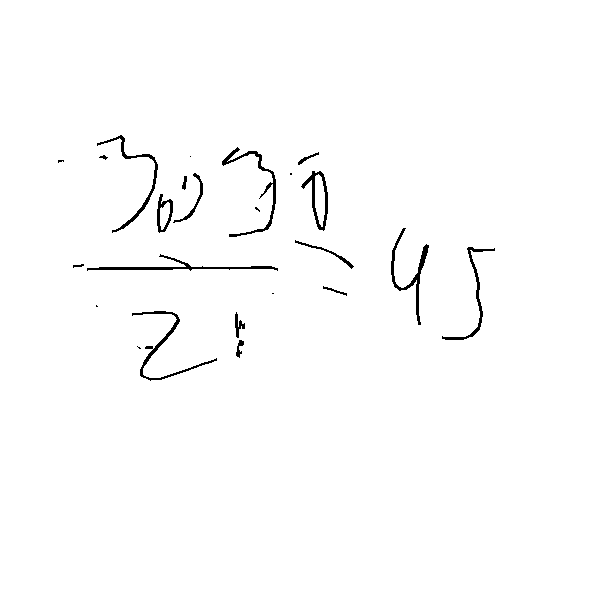 3 30
2
= 45